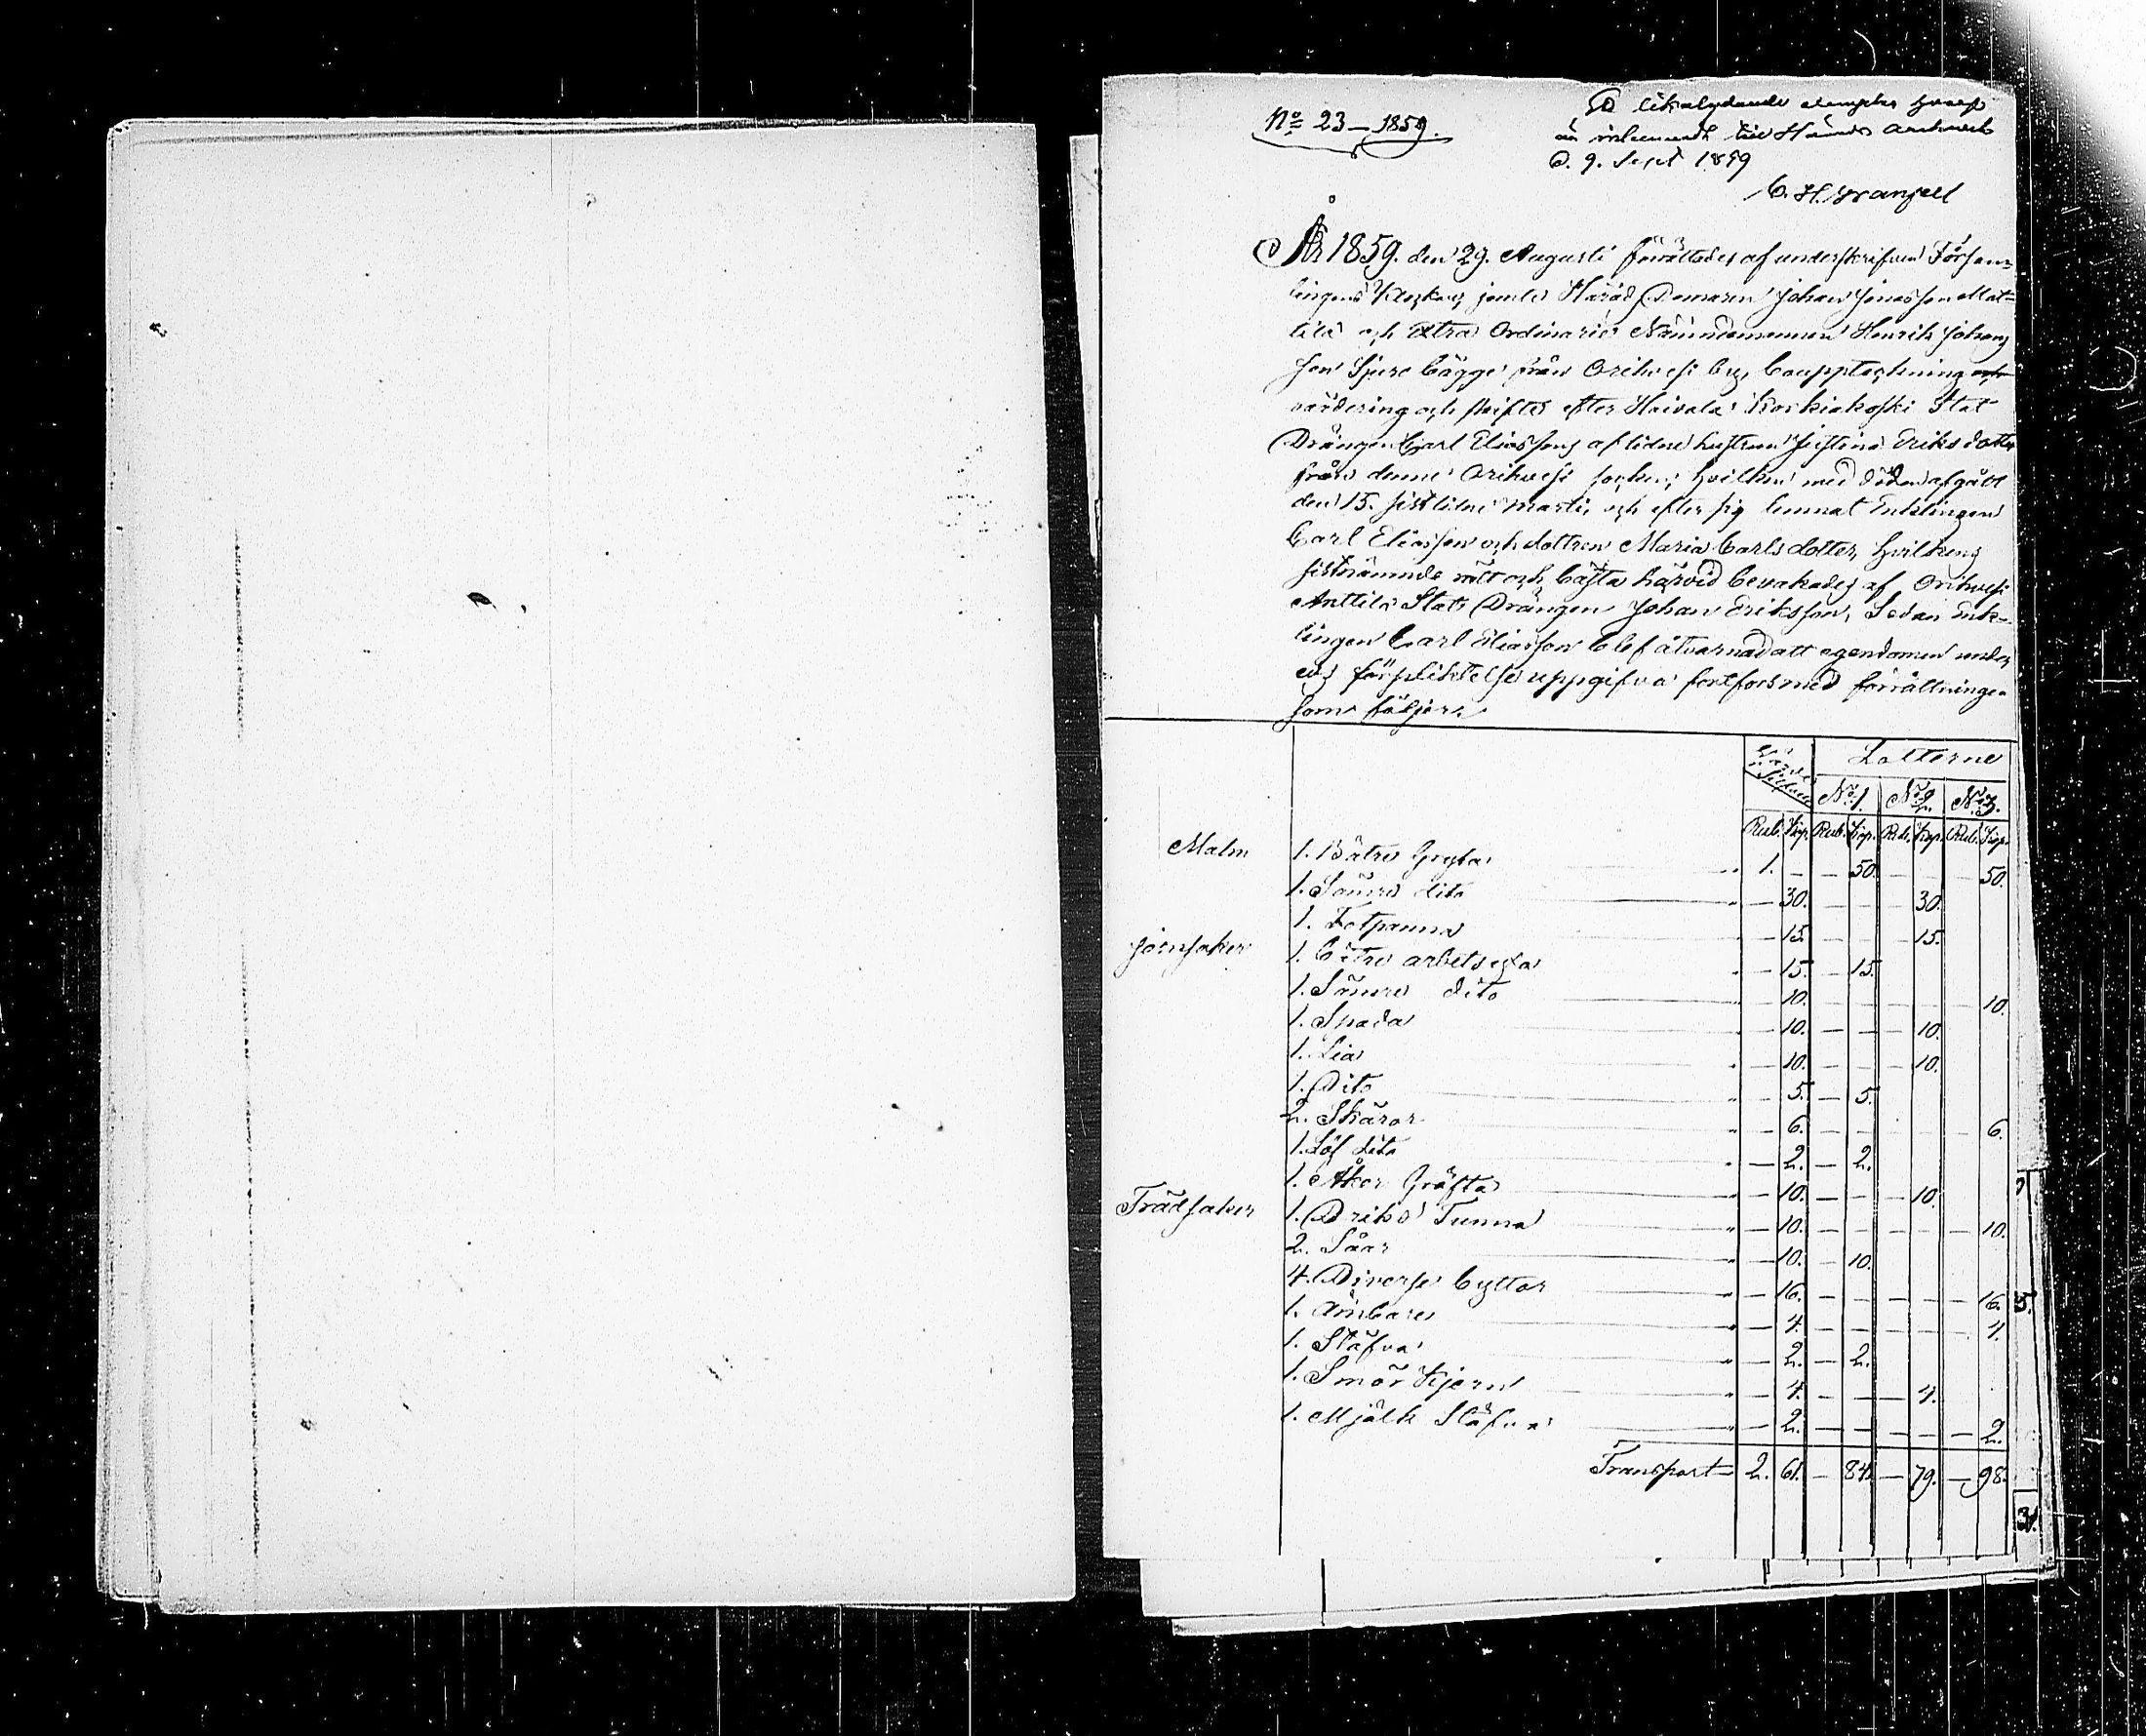 No 23 – 1859.
likalydande
är Härads
d. 9. Sept 1859
C. H. Wranjell
År 1859. den 29. Augusti förrättades af underskrifven Försam=
lingens jemte Härads Domaren Johan Jonasson Mat=
tila och Extra Ordinarie Nämndemannen Henrik Johans
son Sjure bägge från Orihvesi by, bouppteckning och
värdering och skifte efter Haivala Koskiakoski Stat
Drängen Carl Eliassons aflidne hustru Justina Eriksdotter
från denne Orihvesi socken, hvilken med döden afgått
den 15. sistlidne Martii, och efter sig lemnat Enklingen
Carl Eliasson och dottren Maria Carlsdotter, hvilkens
sistnämnde rätt och bästa härvid bevakades af Orihvesi
Anttila Stats Drängen Johan Eriksson, Sedan Enk=
lingen Carl Eliasson blef åtvarnad att egendomen under
eds förpliktelse uppgifva fortfors med förrättningen
som följer.
Lotterne
Silfver No 1. No 2. No 3.
Rub. Kop. Rub. Kop. Rub. Kop. Rub. Kop.
Malm 1. Bätre Gryta 1. – – 50. – – – 50.
1. Sämre dito – 30. – – – 30.
1. Fotpanna – 15. – – – 15.
Järnsaker 1. bätre arbetsyxa – 15. – 15.
1. Sämre dito – 10. – – – – – 10.
1. Spada – 10. – – – 10.
1. Lia – 10. – – – 10.
1. Dito – 5. – 5.
2. Skäror – 6. – – – – – 6.
1. Löf dito – 2. – 2.
1. Åker Gräfta – 10. – – – 10.
Trädsaker 1. Driks Tunna – 10. – – – – – 10.
2. Såar – 10. – 10.
4. Diverse byttor – 16. – – – – – 16.
1. Ämbare – 4. – – – – – 4.
1. Stäfva – 2. – 2.
1. Smör Kjerna – 4. – – – 4.
1. Mjölk Stäfva – 2. – – – – – 2.
Transport 2. 61. – 84. – 79. – 98.